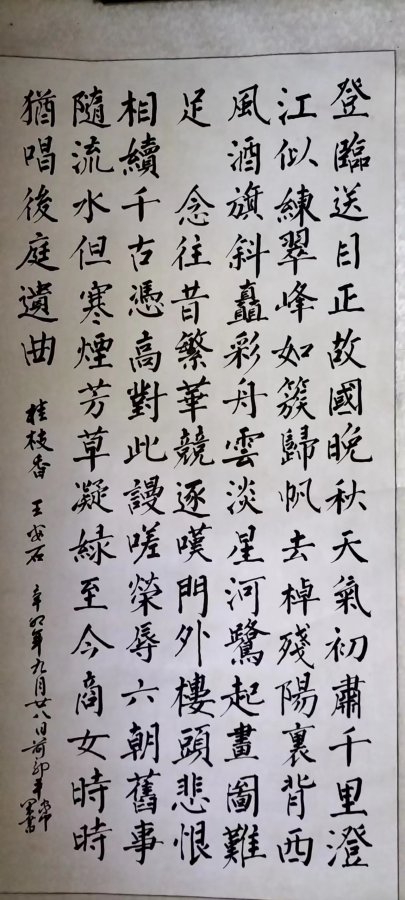 登臨送目正故國晚秋天氣初肅千里澄
江似練翠峰如簇歸帆去棹殘陽裏背西
風酒旗斜矗彩舟雲淡星河鷺起畫圖難
足 念往昔繁華競逐嘆門外樓頭悲恨
相續千古憑高對此謾嗟榮辱六朝舊事
隨流水但寒煙芳草凝綠至今商女時時
猶唱後庭遺曲 桂枝香 王安石 辛卯年九月廿八日